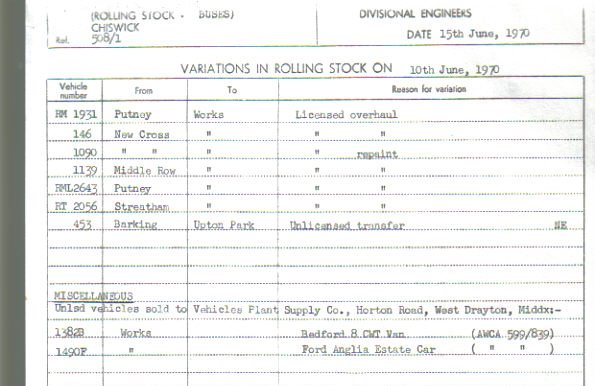 (ROLLING STOCK - BUSES) DIVISIONAL ENGINEERS
CHISWICK
Ref. 508/1 DATE 15th June, 1970
VARIATIONS IN ROLLING STOCK ON 10th June, 1970
Vehicle number From To Reason for variation
RM 1931 Putney Works Licensed overhaul
146 New Cross " " "
1090 " " " " repaint
1139 Middle Row " " "
RML2643 Putney " " "
RT 2056 Streatham " " "
453 Barking Upton Park Unlicensed transfer NE
MISCELLANEOUS
Unlsd vehicles sold to Vehicles Plant Supply Co., Horton Road, West Drayton, Middx:-
1382B Works Bedford 8 CWT Van (AWCA 599/839)
1490F " Ford Anglia Estate Car ( " " )